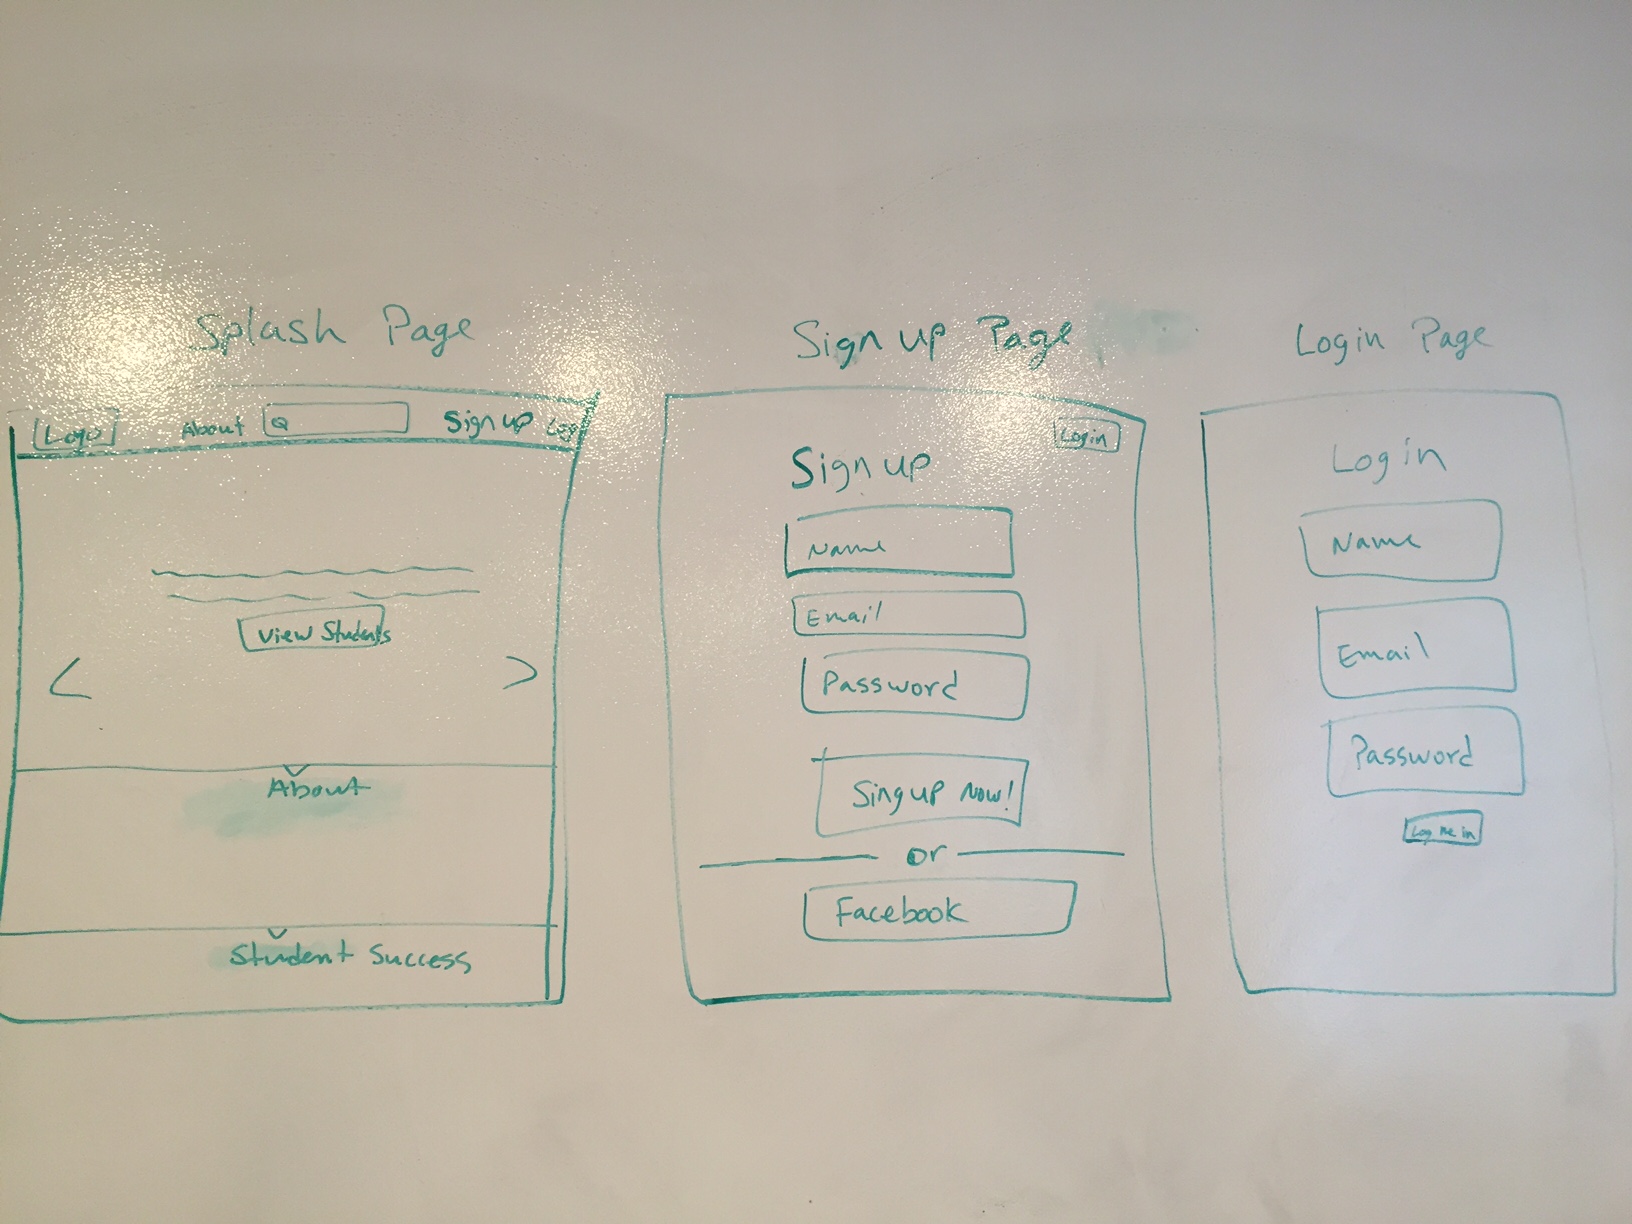 Splash Page
Logo About Sign up Log
View Students
About
Student Success
Sign up Page
Login
Sign up
Name
Email
Password
Singup Now!
or
Facebook
Login Page
Login
Name
Email
Password
Log me in